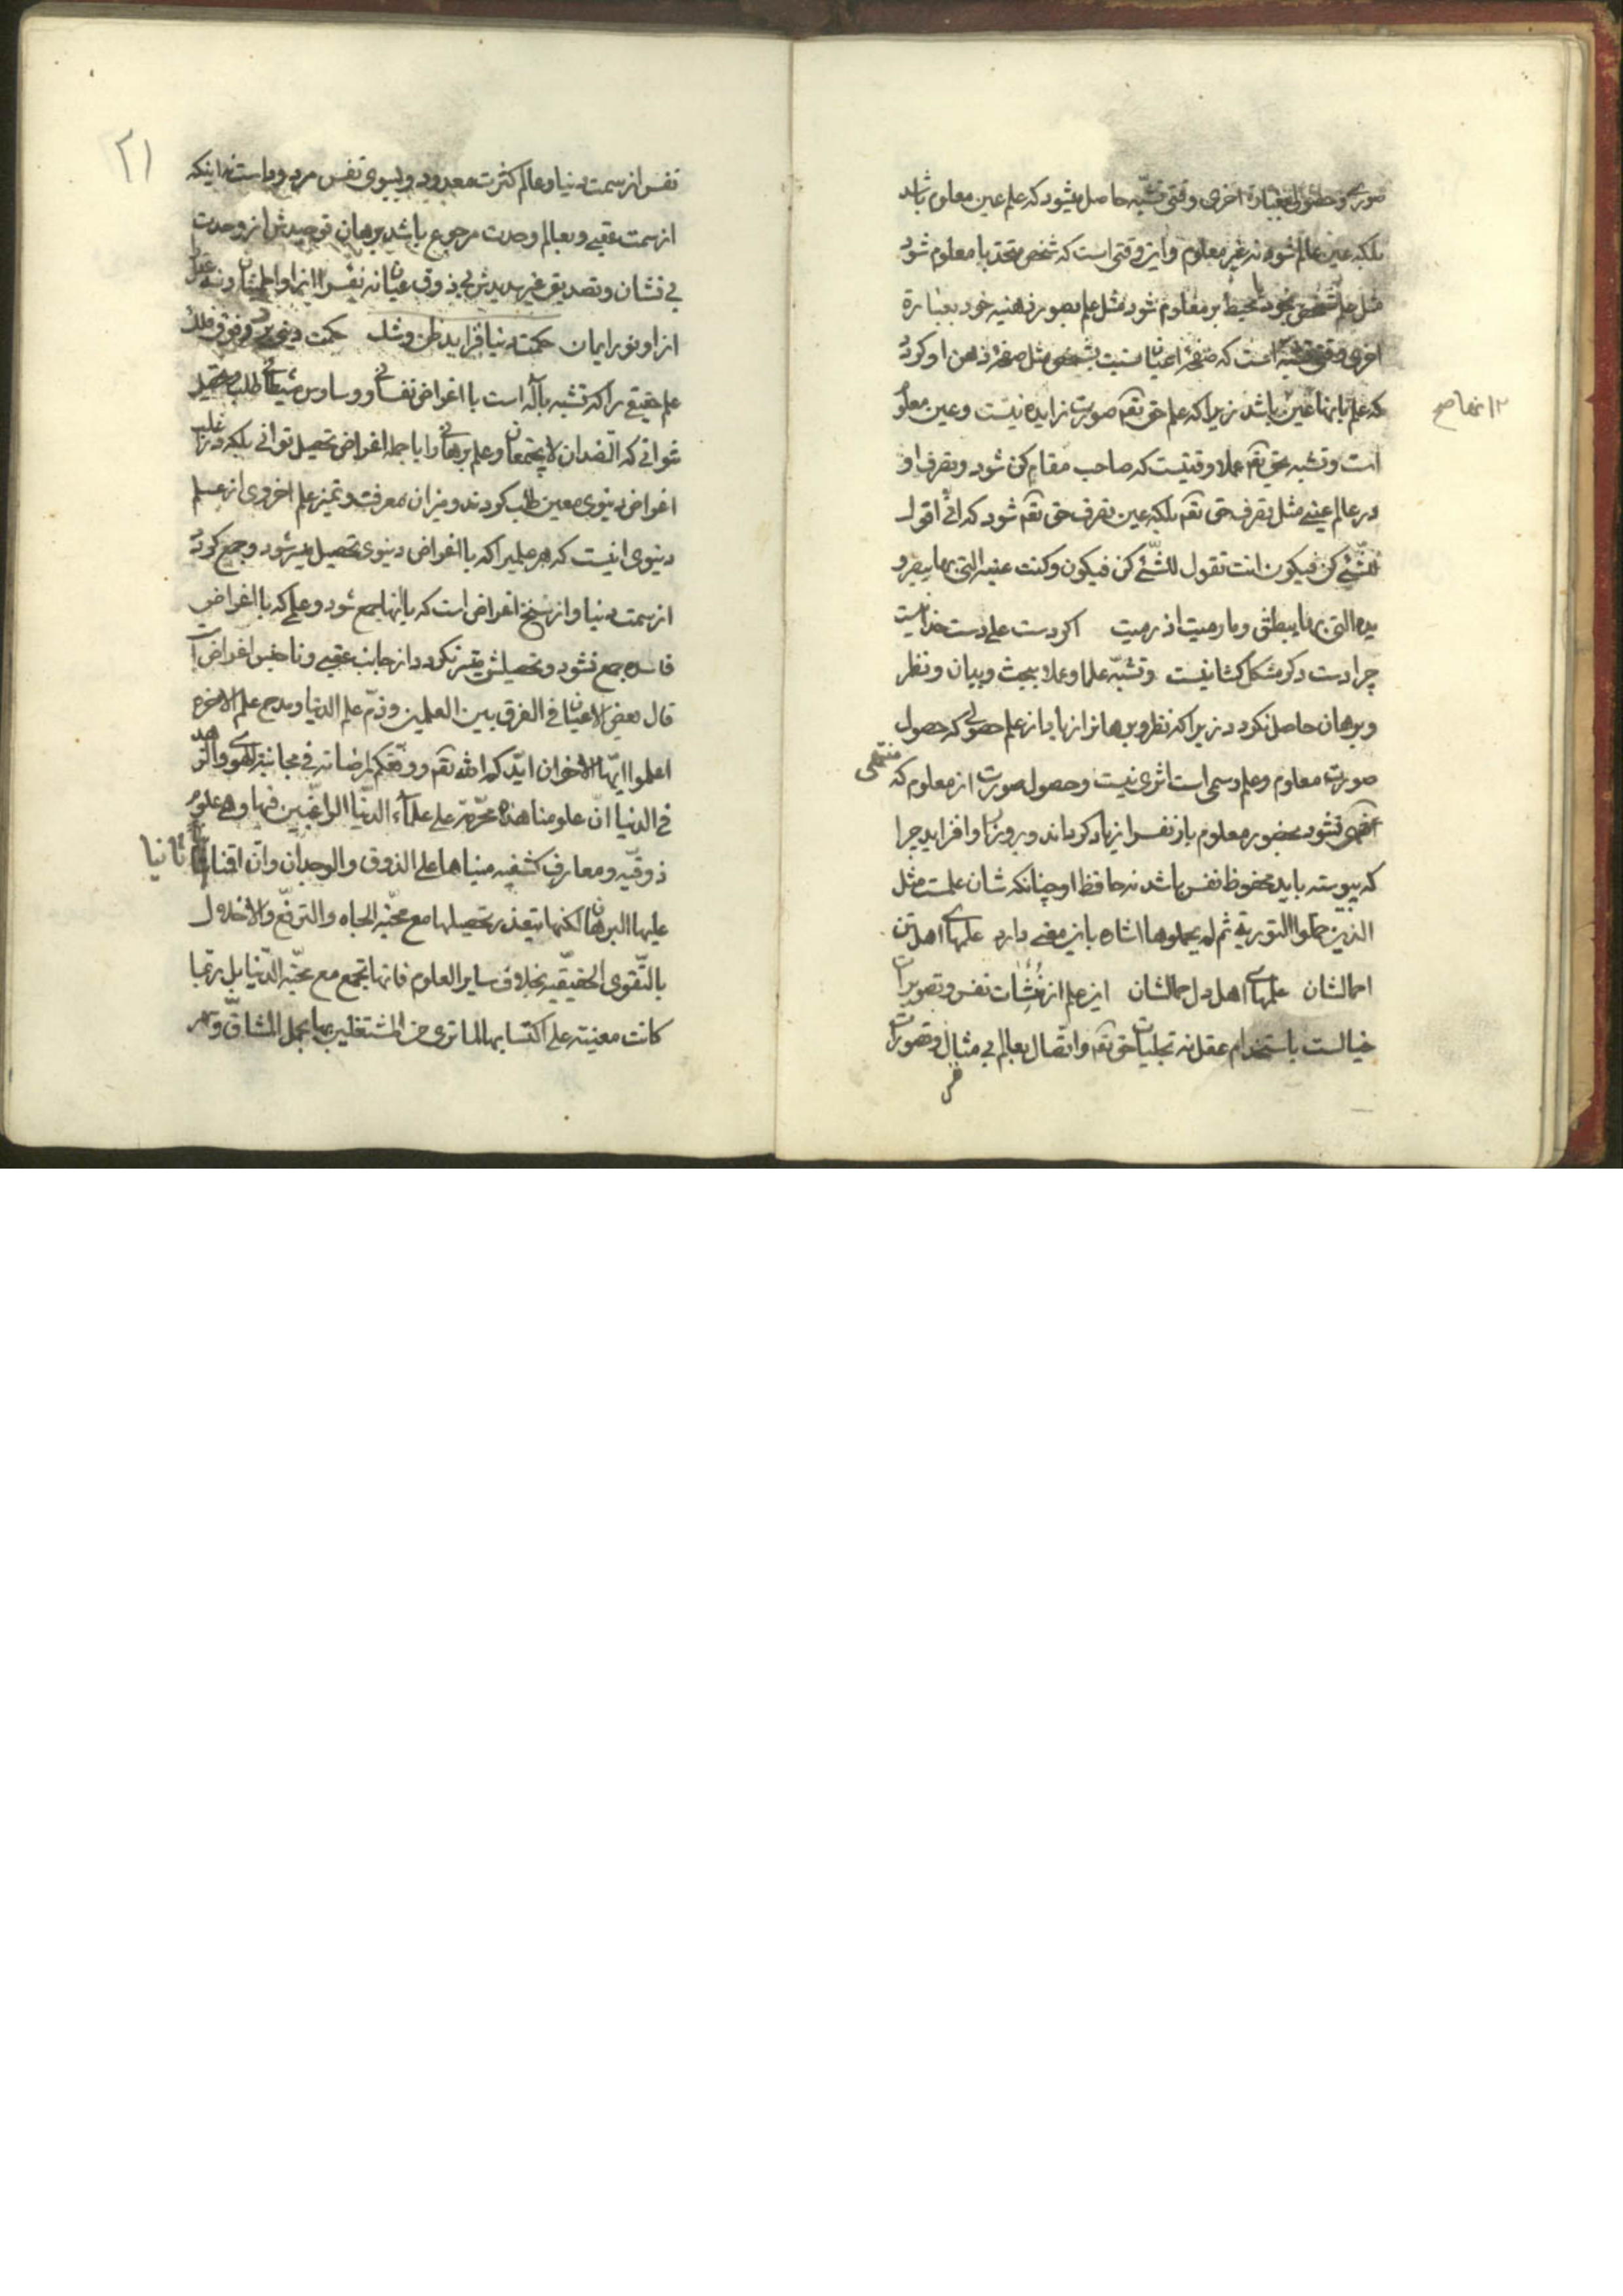 صوری و حصولی بعبارة اخری وقتی تشبه حاصل میشود که علم عین معلوم باشد
بلکه عین عالم شود نه غیر معلوم و این وقتی است که شخص متحد با معلوم شود
مثل علم شخص بخود یا محیط بر معلوم شود مثل علم بصور ذهنیه خود بعبارة
اخری وقتی تشبه است که صفحه اعیان نسبت بشخص مثل صفحه ذهن او کردد
که علم بانها عین انها باشد زیرا که علم حق تعم صورت زایده نیست و عین معلوم
است و تشبه بحق تعم عملا وقتیست که صاحب مقام کن شود و تصرف او
در عالم عینی مثل تصرف حق تعم بلکه عین تصرف حق تعم شود که انی اقول
للشّیٔ کن فیکون انت تقول للشّیٔ کن فیکون و کنت عینه التی بها یبصر و
یده التی بها یبطش و ما رمیت اذ رمیت اکر دست علی دست خدا نیست
چرا دست دکر مشکل کشا نیست و تشبّه علما و عملا ببحث و بیان و نظر
و برهان حاصل نکردد زیرا که نظر و برهانرا زیاد از علم حصولی که حصول
صورت معلوم و علم رسمی است اثری نیست و حصول صورت از معلوم که منتهی
نشود بحضور معلوم بار نفس را زیاد کرداند و بر وزر او افزاید چرا
که پیوسته باید محفوظ نفس باشد نه حافظ او چنانکه شان علمست مثل
الذین حملوا التوریة ثم لم یحملوها اشاره باین معنی دارد علمهای اهل تن
احمالشان علمهای اهل دل حمالشان این علم از منشات نفس و تصویرات
خیالست باستخدام عقل نه تجلیات حق تعم و اتصال بعالم بی مثال و تصورات
نفس از سمت دنیا و عالم کثرت معدود و بسوی نفس مردود است نه اینکه
از سمت عقبی و بعالم وحدت مرجوع باشد برهان توحیدش از وحدت
بی نشان و تصدیق غیر بدیدش بی ذوق عیان نه نفس را از او اطمینان و نه عقل
از او نور ایمان حکمت دنیا فزاید ظن و شک حکمت دینی برد فوق فلک
علم حقیقی را که تشبه باله است با اغراض نفسانی و وساوس شیطانی طلب و تحصیل
نتوانی که الضدان لا یجتمعان و علم برهانی را با جمله اغراض تحصیل توانی بلکه در غالب
اغراض دنیوی معین طلب کردند و میزان معرفت و تمیز علم اخروی از علم
دنیوی اینست که هر علمیرا که با اغراض دنیوی تحصیل میسر شود و جمع کردد
از سمت دنیا و از سنخ اغراض است که بانها جمع شود و علمی که با اغراض
فاسده جمع نشود و تحصیلش میسر نکردد از جانب عقبی و ناجنس اغراض است
قال بعض الاعیان فی الفرق بین العلمین و ذمّ علم الدنیا و مدح علم الاخرة
اعلموا ایّها الاخوان ایّدکم الله تعم و وفّقکم لمرضاته فی مجانبة الهوی و الزهد
فی الدنیا انّ علومنا هذه محرّمة علی علماء الدّنیا الراغبین فیها و هی علوم
ذوقیّه و معارف کشفیه مبناها علی الذوق و الوجدان و ان اقتنانا ثانیا
علیها البرهان لکنها یتعذر تحصیلها مع محبّة الجاه و الترفع و الاخلال
بالتّقوی الحقیقیّه بخلاف سایر العلوم فانها تجمع مع محبّة الدّنیا بل ربّما
کانت معینة علی اکتسابها لما تری من المشتغلین بها بحمل المشاقّ و سهر
۲۱